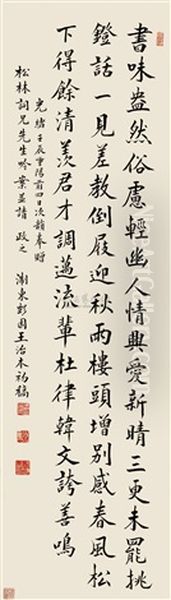 書味盎然俗慮輕幽人情興愛新晴三更未罷挑
鐙話一見差教倒屐迎秋雨樓頭增別感春風松
下得餘清羨君才調邁流輩杜律韓文誇善鳴
光緒壬辰重陽前四日次韻奉贈
松林詞兄先生吟案並請 政之
浙東 園王治本初稿